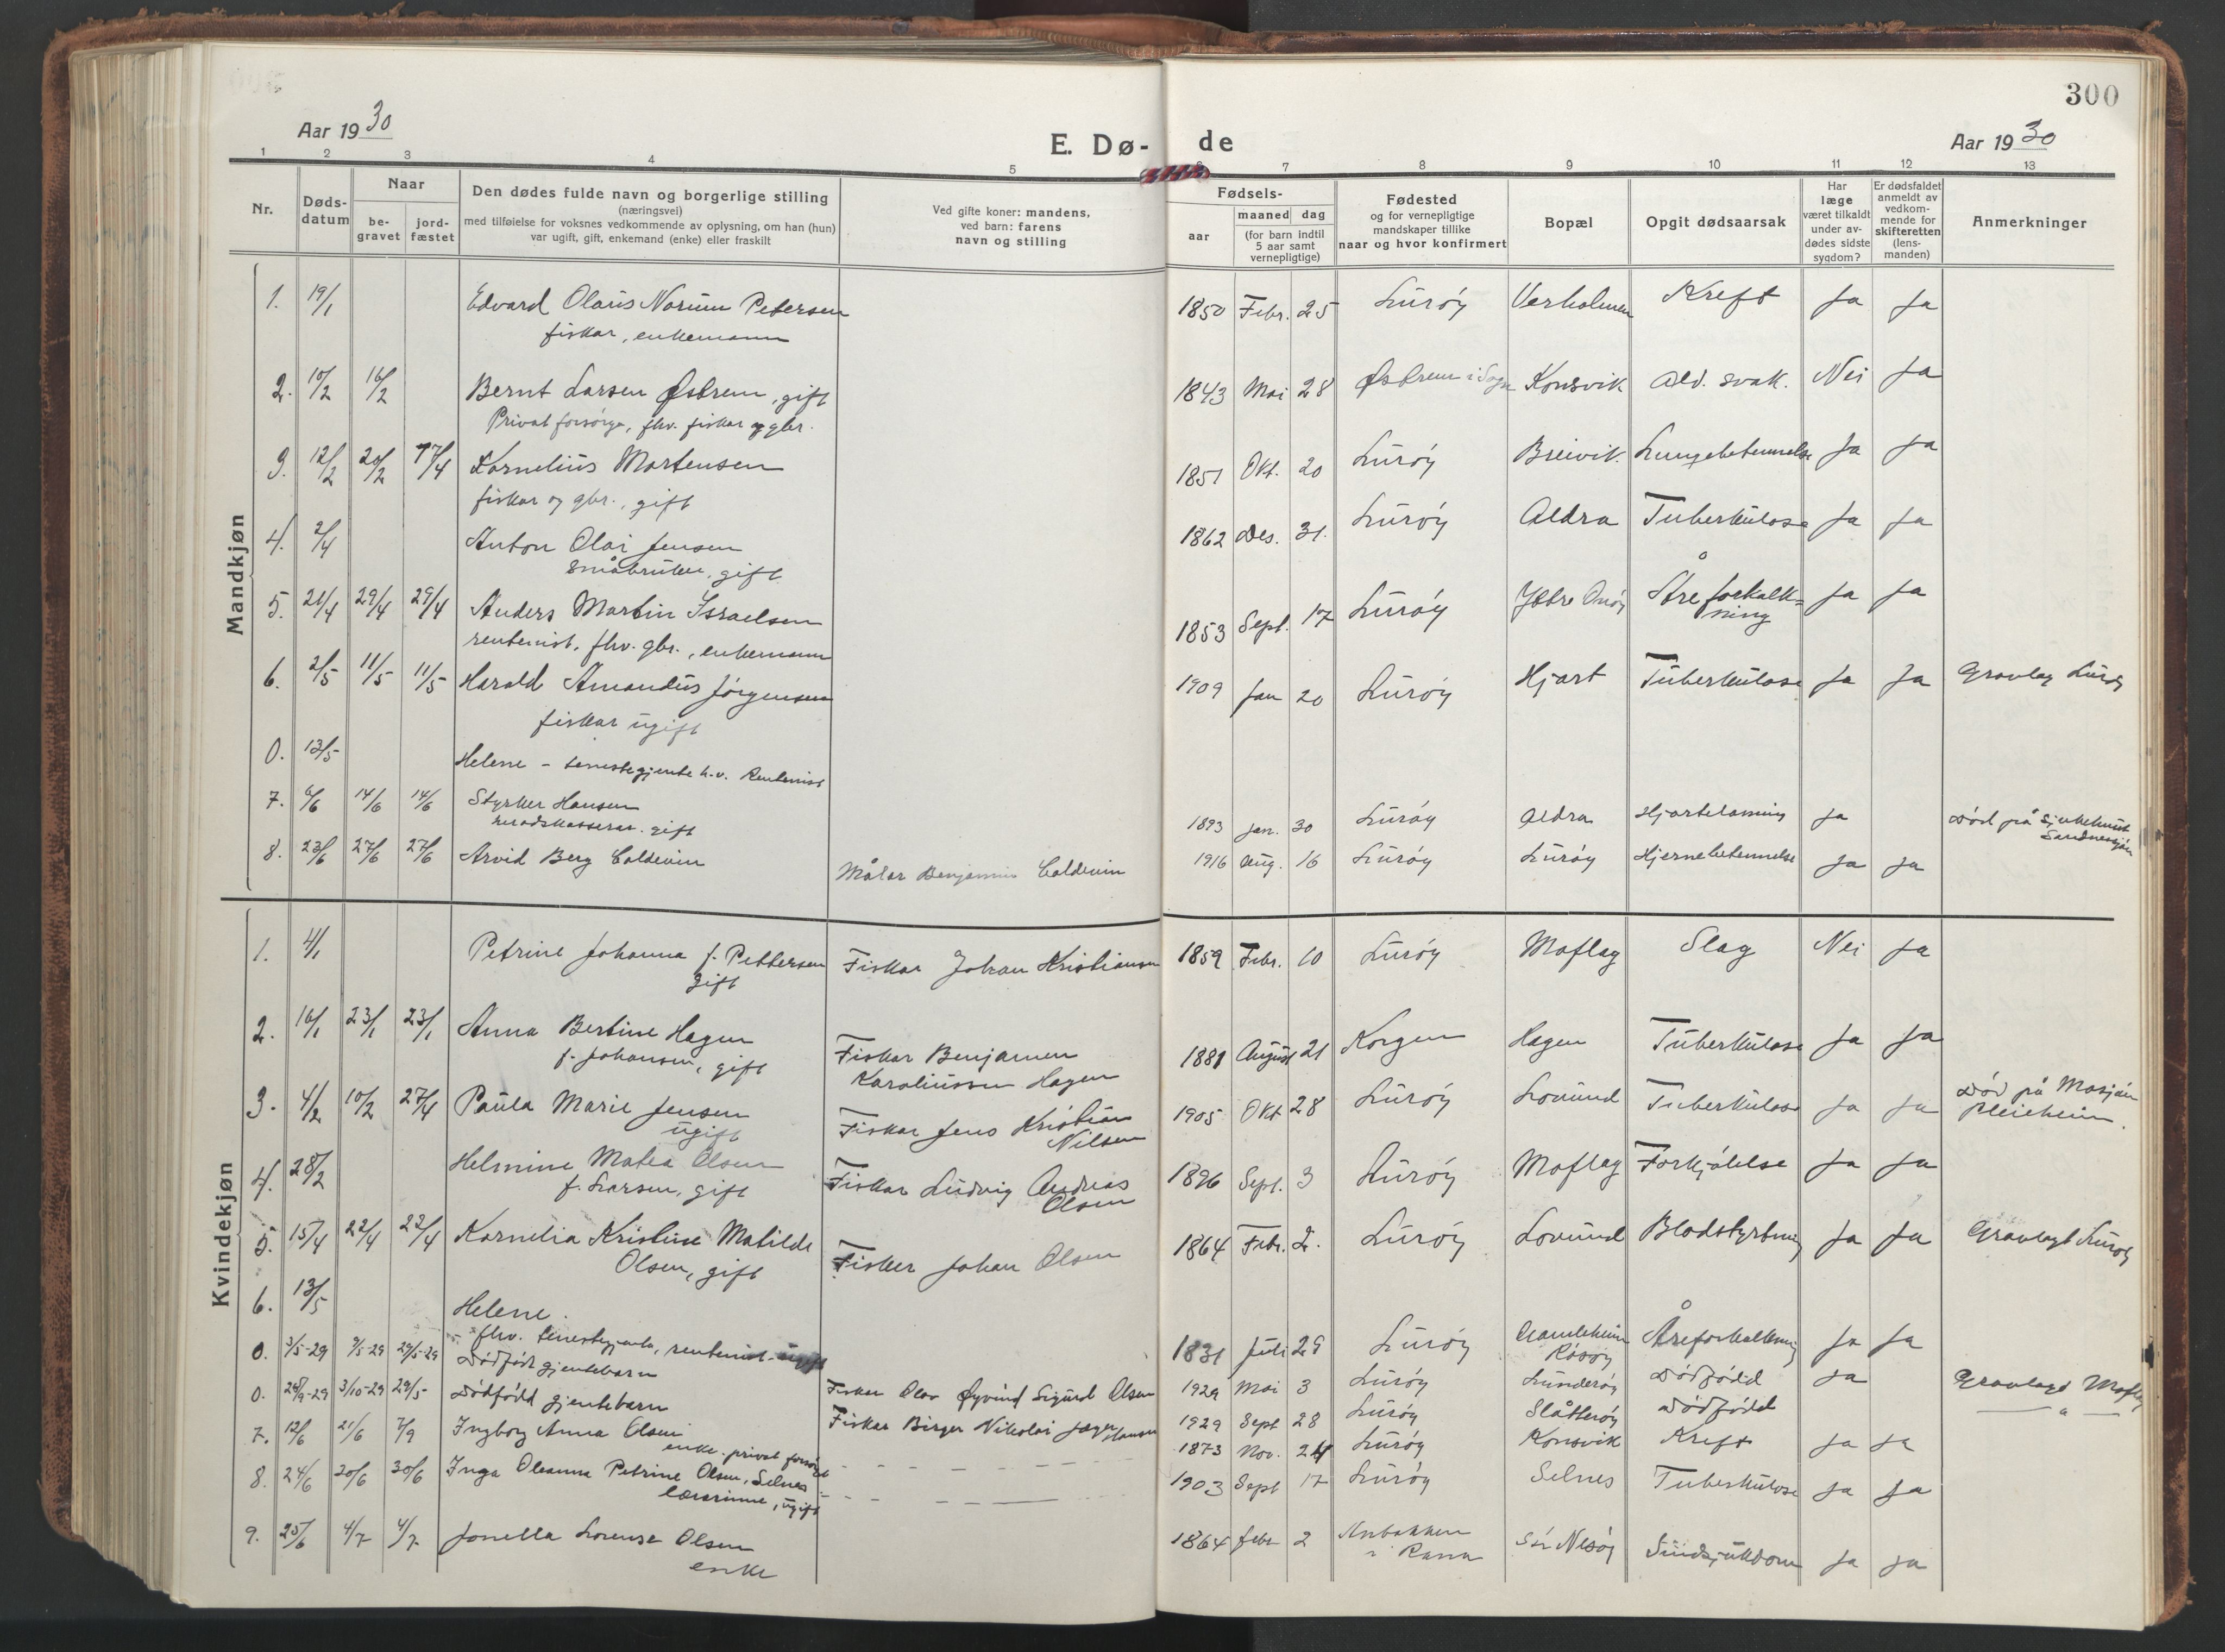 300
Aar 1930
E. Dø-de
Aar 1930
1 2 3 4 5 6 7 8 9 10 11 12 13
Nr.
Døds-datum
Naar
be-gravet
jord-fæstet
Den dødes fulde navn og borgerlige stilling
(næringsvei)
med tilføielse for voksnes vedkommende av oplysning, om han (hun)
var ugift, gift, enkemand (enke) eller fraskilt
Ved gifte koner: mandens,
ved barn: farens
navn og stilling
Fødsels-
aar
maaned dag
(for barn indtil
5 aar samt
vernepligtige)
Fødested
og for vernepligtige
mandskaper tillike
naar og hvor konfirmert
Bopæl
Opgit dødsaarsak
Har
læge
været tilkaldt
under av-
dødes sidste
sygdom?
Er dødsfaldet
anmeldt av
vedkom-
mende for
skifteretten
(lens-
manden)
Anmerkninger
Mandkjøn
1. 19/1 Edvard Olaus Norum Petersen 1850 Febr. 25 Lurøy Verholmen Kreft Ja Ja
fiskar, enkemann
2. 10/2 16/2 Bernt Larsen Østrem, gift 1843 Mai 28 Østrem i Sogn Konsvik Ald. svak. Nei Ja
Privat forsørge, fhv. fiskar og gbr.
3. 12/2 20/2 17/4 Kornelius Mortensen 1851 Okt. 20 Lurøy Breivik Lungebetennelse Ja Ja
fiskar og gbr., gift
4. 2/4 Anton Olai Jensen 1862 Des. 31. Lurøy Aldra Tuberkulose Ja Ja
småbruker, gift
5. 21/4 29/4 29/4 Anders Martin Israelsen 1853 Sept. 17 Lurøy Ytre Onøy Åreforkalk=
ning Ja Ja
rentenist, fhv. gbr., enkemann
6. 2/5 11/5 11/5 Harald Amandus Jørgensen 1909 Jan 20 Lurøy Hjart Tuberkulose Ja Ja Gravlag Lurøy
fiskar ugift
0. 13/5 Helene - tenestegjente h.v. Rentenist
7. 6/6 14/6 14/6 Styrker Hansen 1893 jan. 30 Lurøy Aldra Hjartelamning Ja Død på Sjukehuset
Sandnessjøen
heradskasserar. gift
8. 23/6 27/6 27/6 Arvid Berg Coldevin Målar Benjamin Coldevin 1916 Aug. 16 Lurøy Lurøy Hjernebetennelse Ja Ja
Kvindekjøn
1. 4/1 Petrine Johanna f. Pettersen Fiskar Johan Kristiansen 1859 Febr. 10 Lurøy Moflag Slag Nei Ja
gift
2. 16/1 23/1 23/1 Anna Bertine Hagen Fiskar Benjamen 1881 August 21 Korgen Hagen Tuberkulose Ja Ja
f. Johansen, gift Karoliussen Hagen
3. 4/2 10/2 27/4 Paula Marie Jensen Fiskar Jens Kristian 1905 Okt 28 Lurøy Lovund Tuberkulose Ja Ja Død på Mosjøen
Pleieheim.
ugift Nilsen
4. 28/2 Helmine Matea Olsen Fiskar Ludvig Andreas 1896 Sept. 3 Lurøy Moflag Forkjølelse Ja Ja
f. Larsen, gift Olsen
5. 15/4 22/4 22/4 Kornelia Kristine Matilde Fisker Johan Olsen 1864 Febr. 2. Lurøy Lovund Blodstyrtning Ja Ja Gravlagt Lurøy
Olsen, gift
6. 13/5 Helene. 1831 Juli 29 Lurøy Gamleheim
Råsøy Åreforkalkning Ja Ja
- fhv. tenestegjente, rentenist - ugift
0. 3/5-29 9/5-29 29/5-29 Dødfødt gjentebarn Fisker Olav Øyvind Sigurd Olsen 1929 Mai 3 Lurøy Lunderøy Dødfødd Ja Gravlagt Moflag
0. 28/9-29 3/10-29 29/5- Dødfødd gjentebarn Fiskar Birger Nikolai Hansen 1929 Sept 28 Lurøy Slåtterøy Dødfødd — " —
7. 12/6 21/6 7/9 Ingborg Anna Olsen 1873 Nov. 24 Lurøy Konsvik Kreft Ja Ja
enke. privat forsørget
8. 24/6 30/6 30/6 Inga Oleanna Petrine Olsen, Selnes 1903 Sept 17 Lurøy Selnes Tuberkulose Ja Ja
lærarinne, ugift
9. 25/6 4/7 4/7 Jonella Lorense Olsen 1864 febr 2 i Rana Sør Nesøy Sindsjukdom Ja Ja
enke